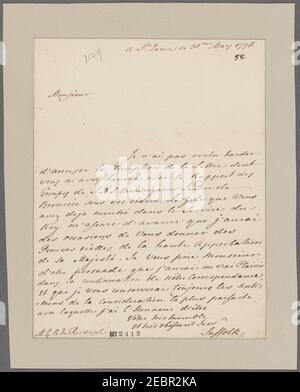 a St James ce 30me May 1776
88.
Monsieur
Je n'ai pas voulu tarder
d'accuser la de la Lettre dont
vous m'avez le Rapport des
Troupes de S.A.S. Monseigneur le Duc de
Bronsvic sous vos ordres. Le Zele que vous
avez deja montré dans le Service du
Roy m'assure d'avance que j'aurai
des occasions de vous donner des
Preuves réelles de la haute approbation
de Sa Majesté. Je vous prie Monsieur
d'etre persuadé que j'aurai un vrai Plaisir
dans la continuation de notre Correspondance
et que je vous conserverai toujours les Senti-
mens de la consideration la plus parfaite,
avec laquelle j'ai l'Honneur d'etre
Votre tres humble
et tres obeissant Serv.
Suffolk.
M. G. de Riedesel
HZ 2412
alamy
Image ID: 2EBR2KA
www.alamy.com